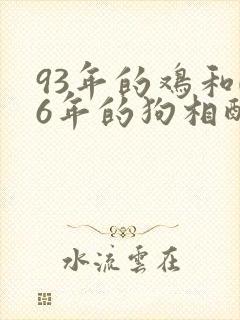 93年的鸡和
6年的狗相
水流雲在